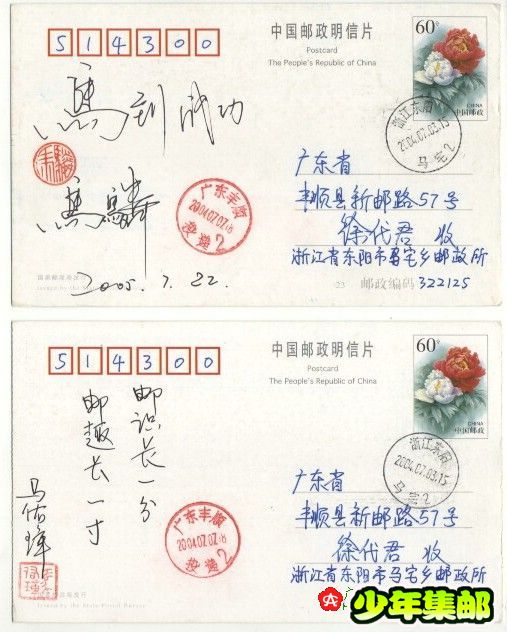 514300
中国邮政明信片
Postcard
The People's Republic of China
60分
CHINA
中国邮政
浙江东阳
2004.07.03.15
马宅2
馬到成功
馬騏
2005.7.22.
广东丰顺
2004.07.07.18
投递2
广东省
丰顺县新邮路57号
徐代君 收
浙江省东阳市马宅乡邮政所
邮政编码 322125
国家邮政局发行
514300
中国邮政明信片
Postcard
The People's Republic of China
60分
CHINA
中国邮政
浙江东阳
2004.07.03.15
马宅2
邮识长一分
邮趣长一寸
马佑璋
广东丰顺
2004.07.07.18
投递2
广东省
丰顺县新邮路57号
徐代君 收
浙江省东阳市马宅乡邮政所
Issued by the State Postal Bureau
少年集邮